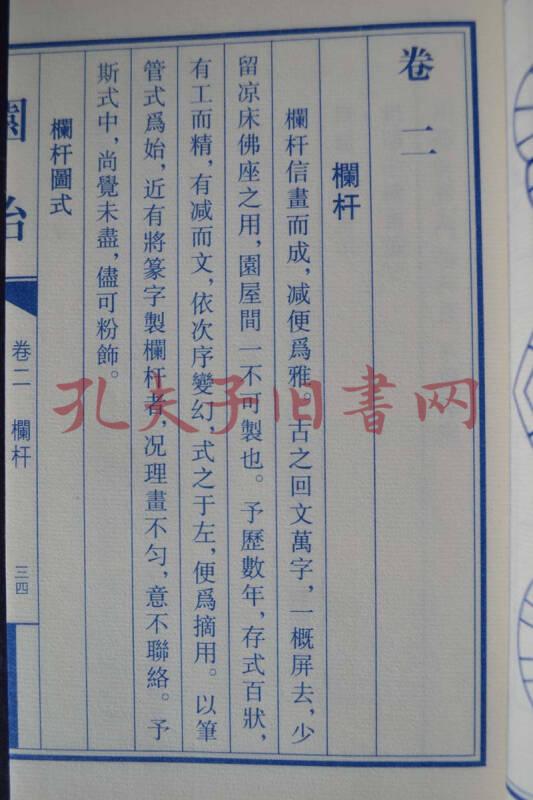 卷二
欄杆
欄杆信畫而成，減便爲雅。古之回文萬字，一概屏去，少
留凉床佛座之用，園屋間一不可製也。予歷數年，存式百狀，
有工而精，有减而文，依次序變幻，式之于左，便爲摘用。以筆
管式爲始，近有將篆字製欄杆者，况理畫不匀，意不聯絡。予
斯式中，尚覺未盡，儘可粉飾。
欄杆圖式
園冶
卷二 欄杆
三四
孔夫子旧書网